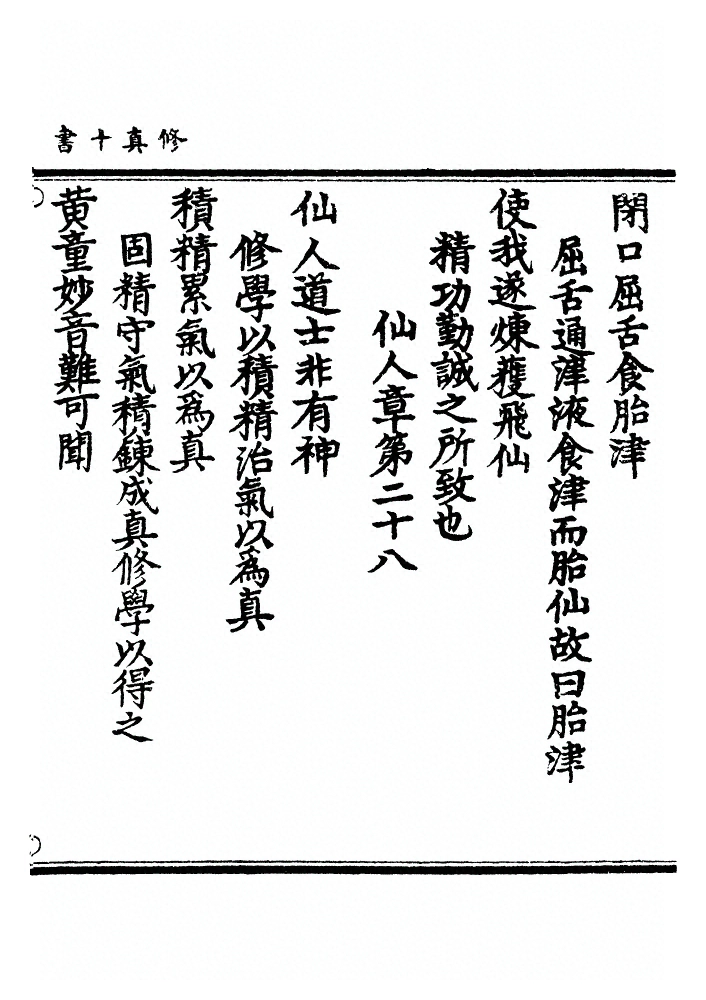 修真十書
閉口屈舌食胎津
屈舌通津液食津而胎仙故曰胎津
使我遂煉獲飛仙
精功勤誠之所致也
仙人章第二十八
仙人道士非有神
修學以積精治氣以爲真
積精累氣以爲真
固精守氣積鍊成真修學以得之
黄童妙音難可聞